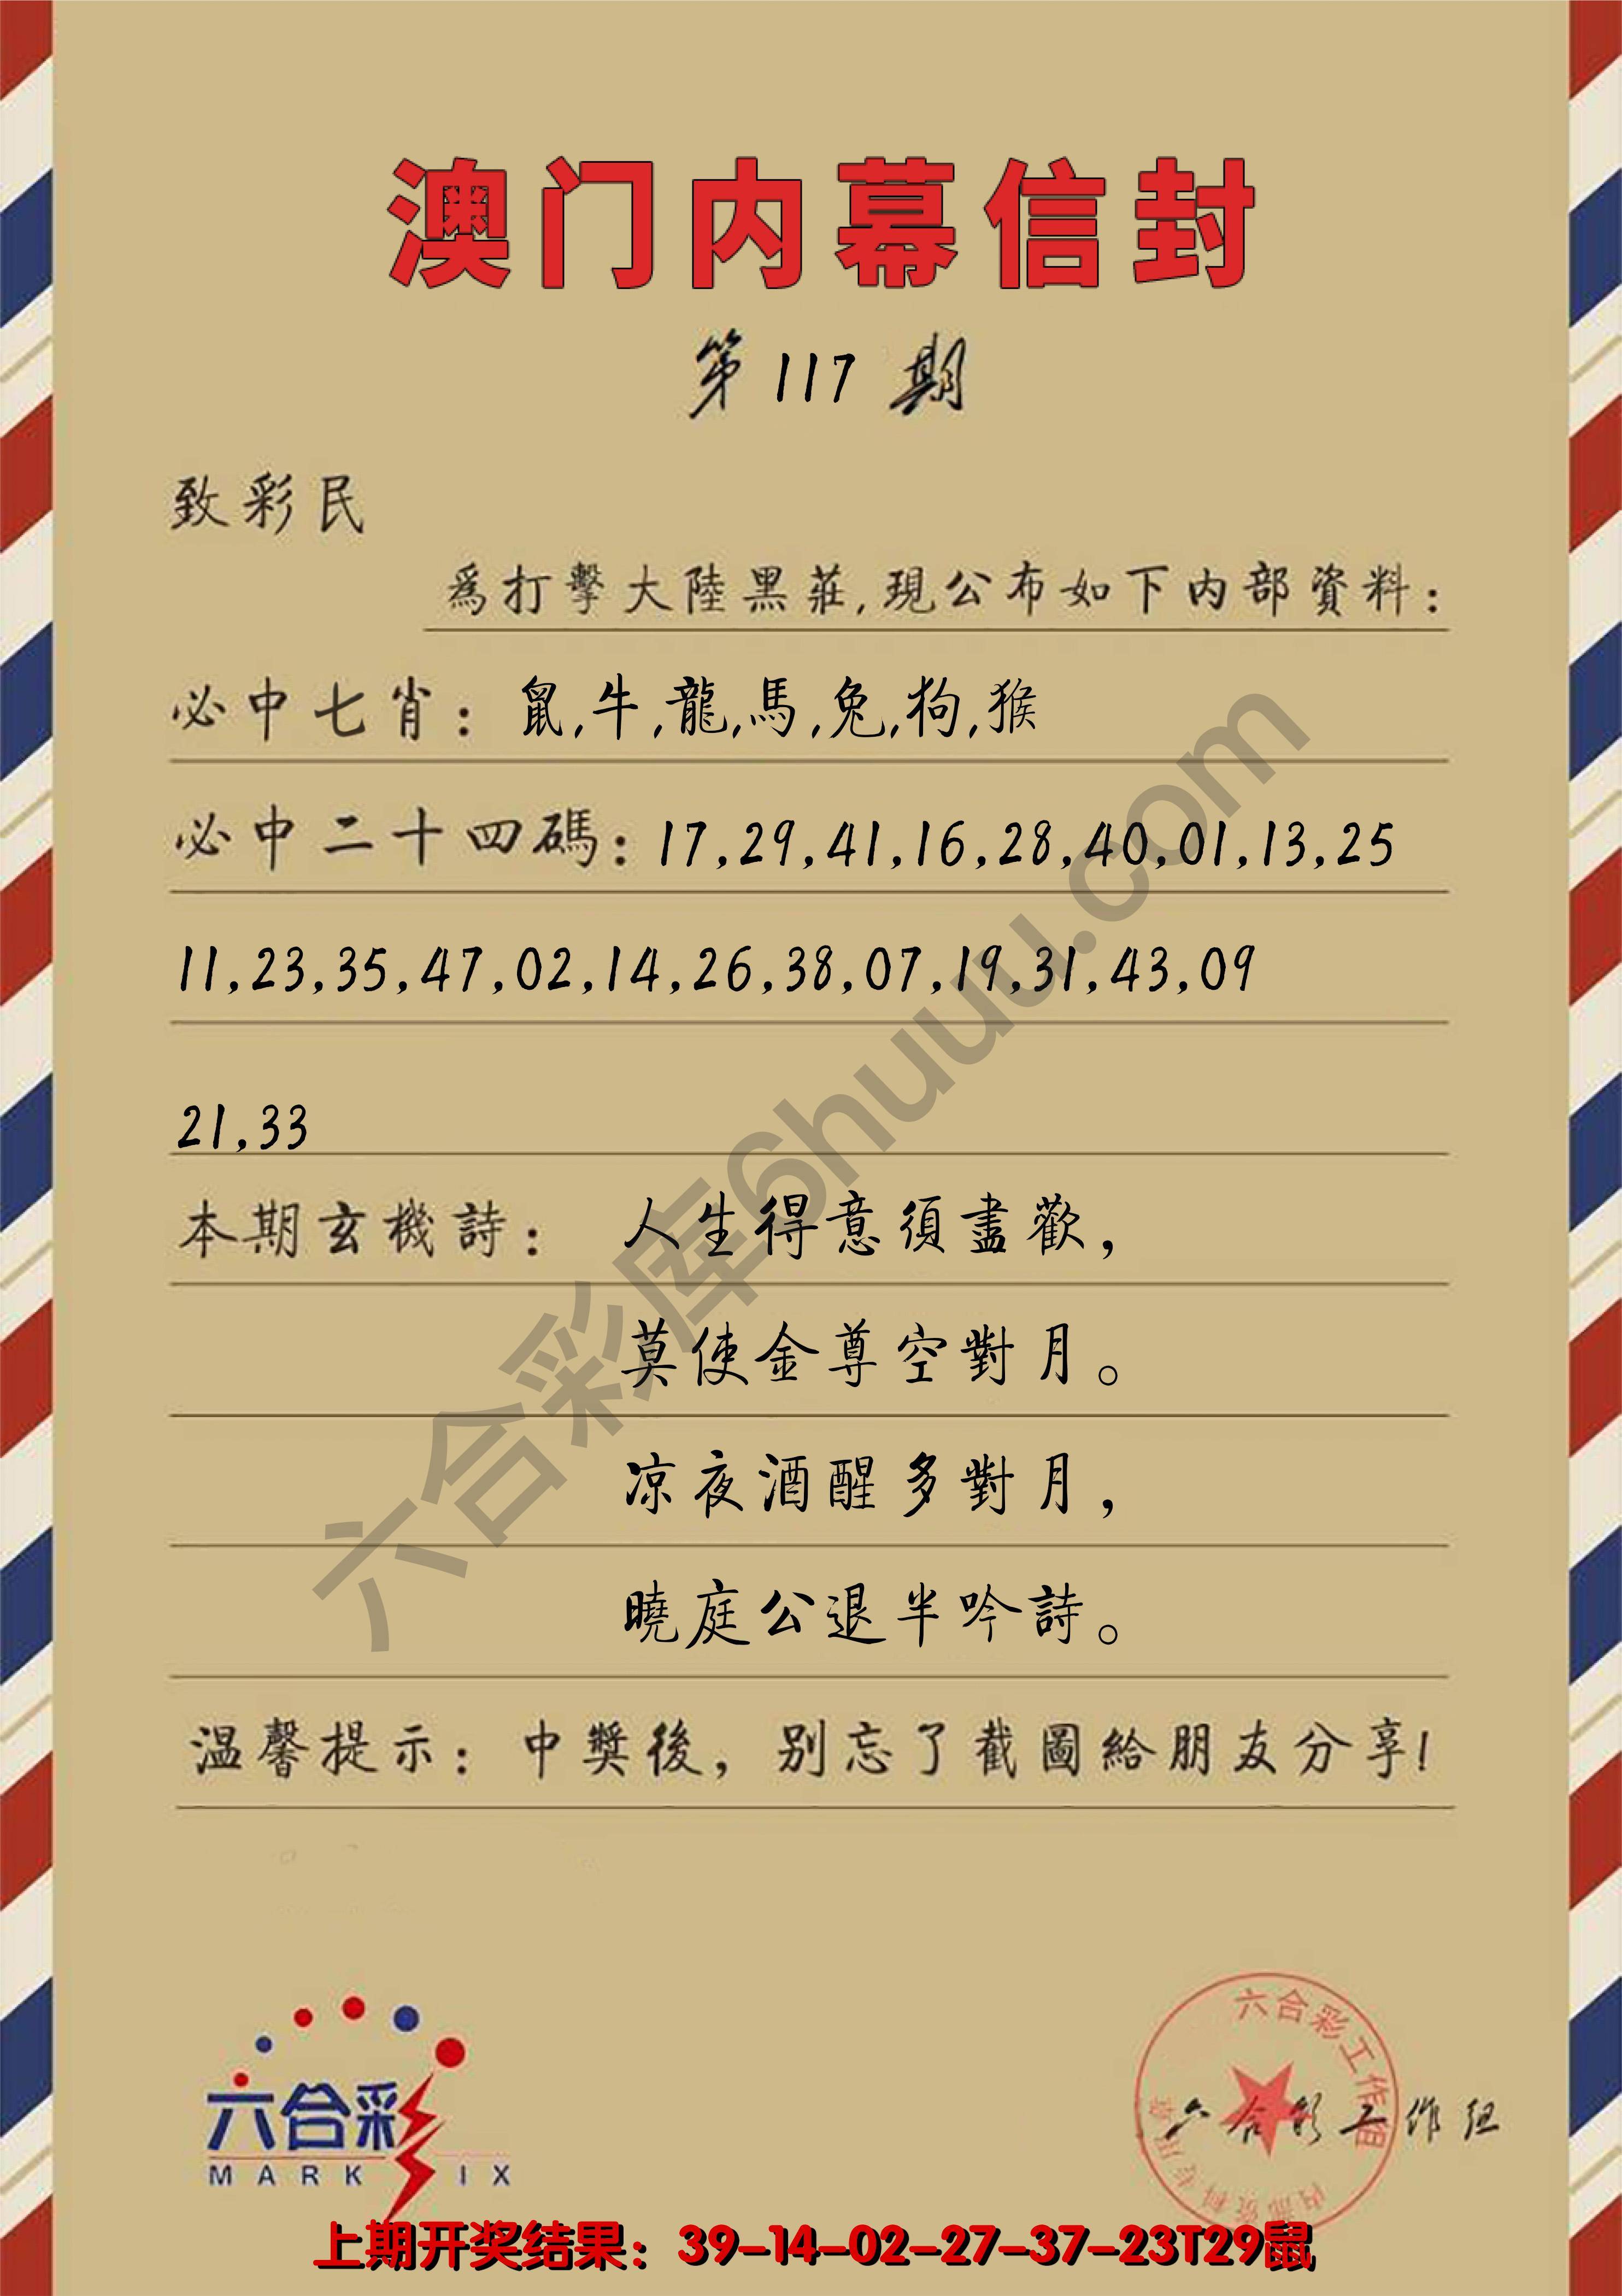 澳门内幕信封
第 117 期
致彩民
爲打擊大陸黑莊,現公布如下内部資料:
必中七肖: 鼠,牛,龍,馬,兔,狗,猴
必中二十四碼:17,29,41,16,28,40,01,13,25
11,23,35,47,02,14,26,38,07,19,31,43,09
21,33
本期玄機詩: 人生得意須盡歡,
莫使金尊空對月。
凉夜酒醒多對月,
曉庭公退半吟詩。
温馨提示: 中獎後, 别忘了截圖給朋友分享!
六合彩库6huuu.com
六合彩
MARK SIX
六合彩工作组
内部资料专用章
六合彩工作组
上期开奖结果: 39-14-02-27-37-23T29鼠